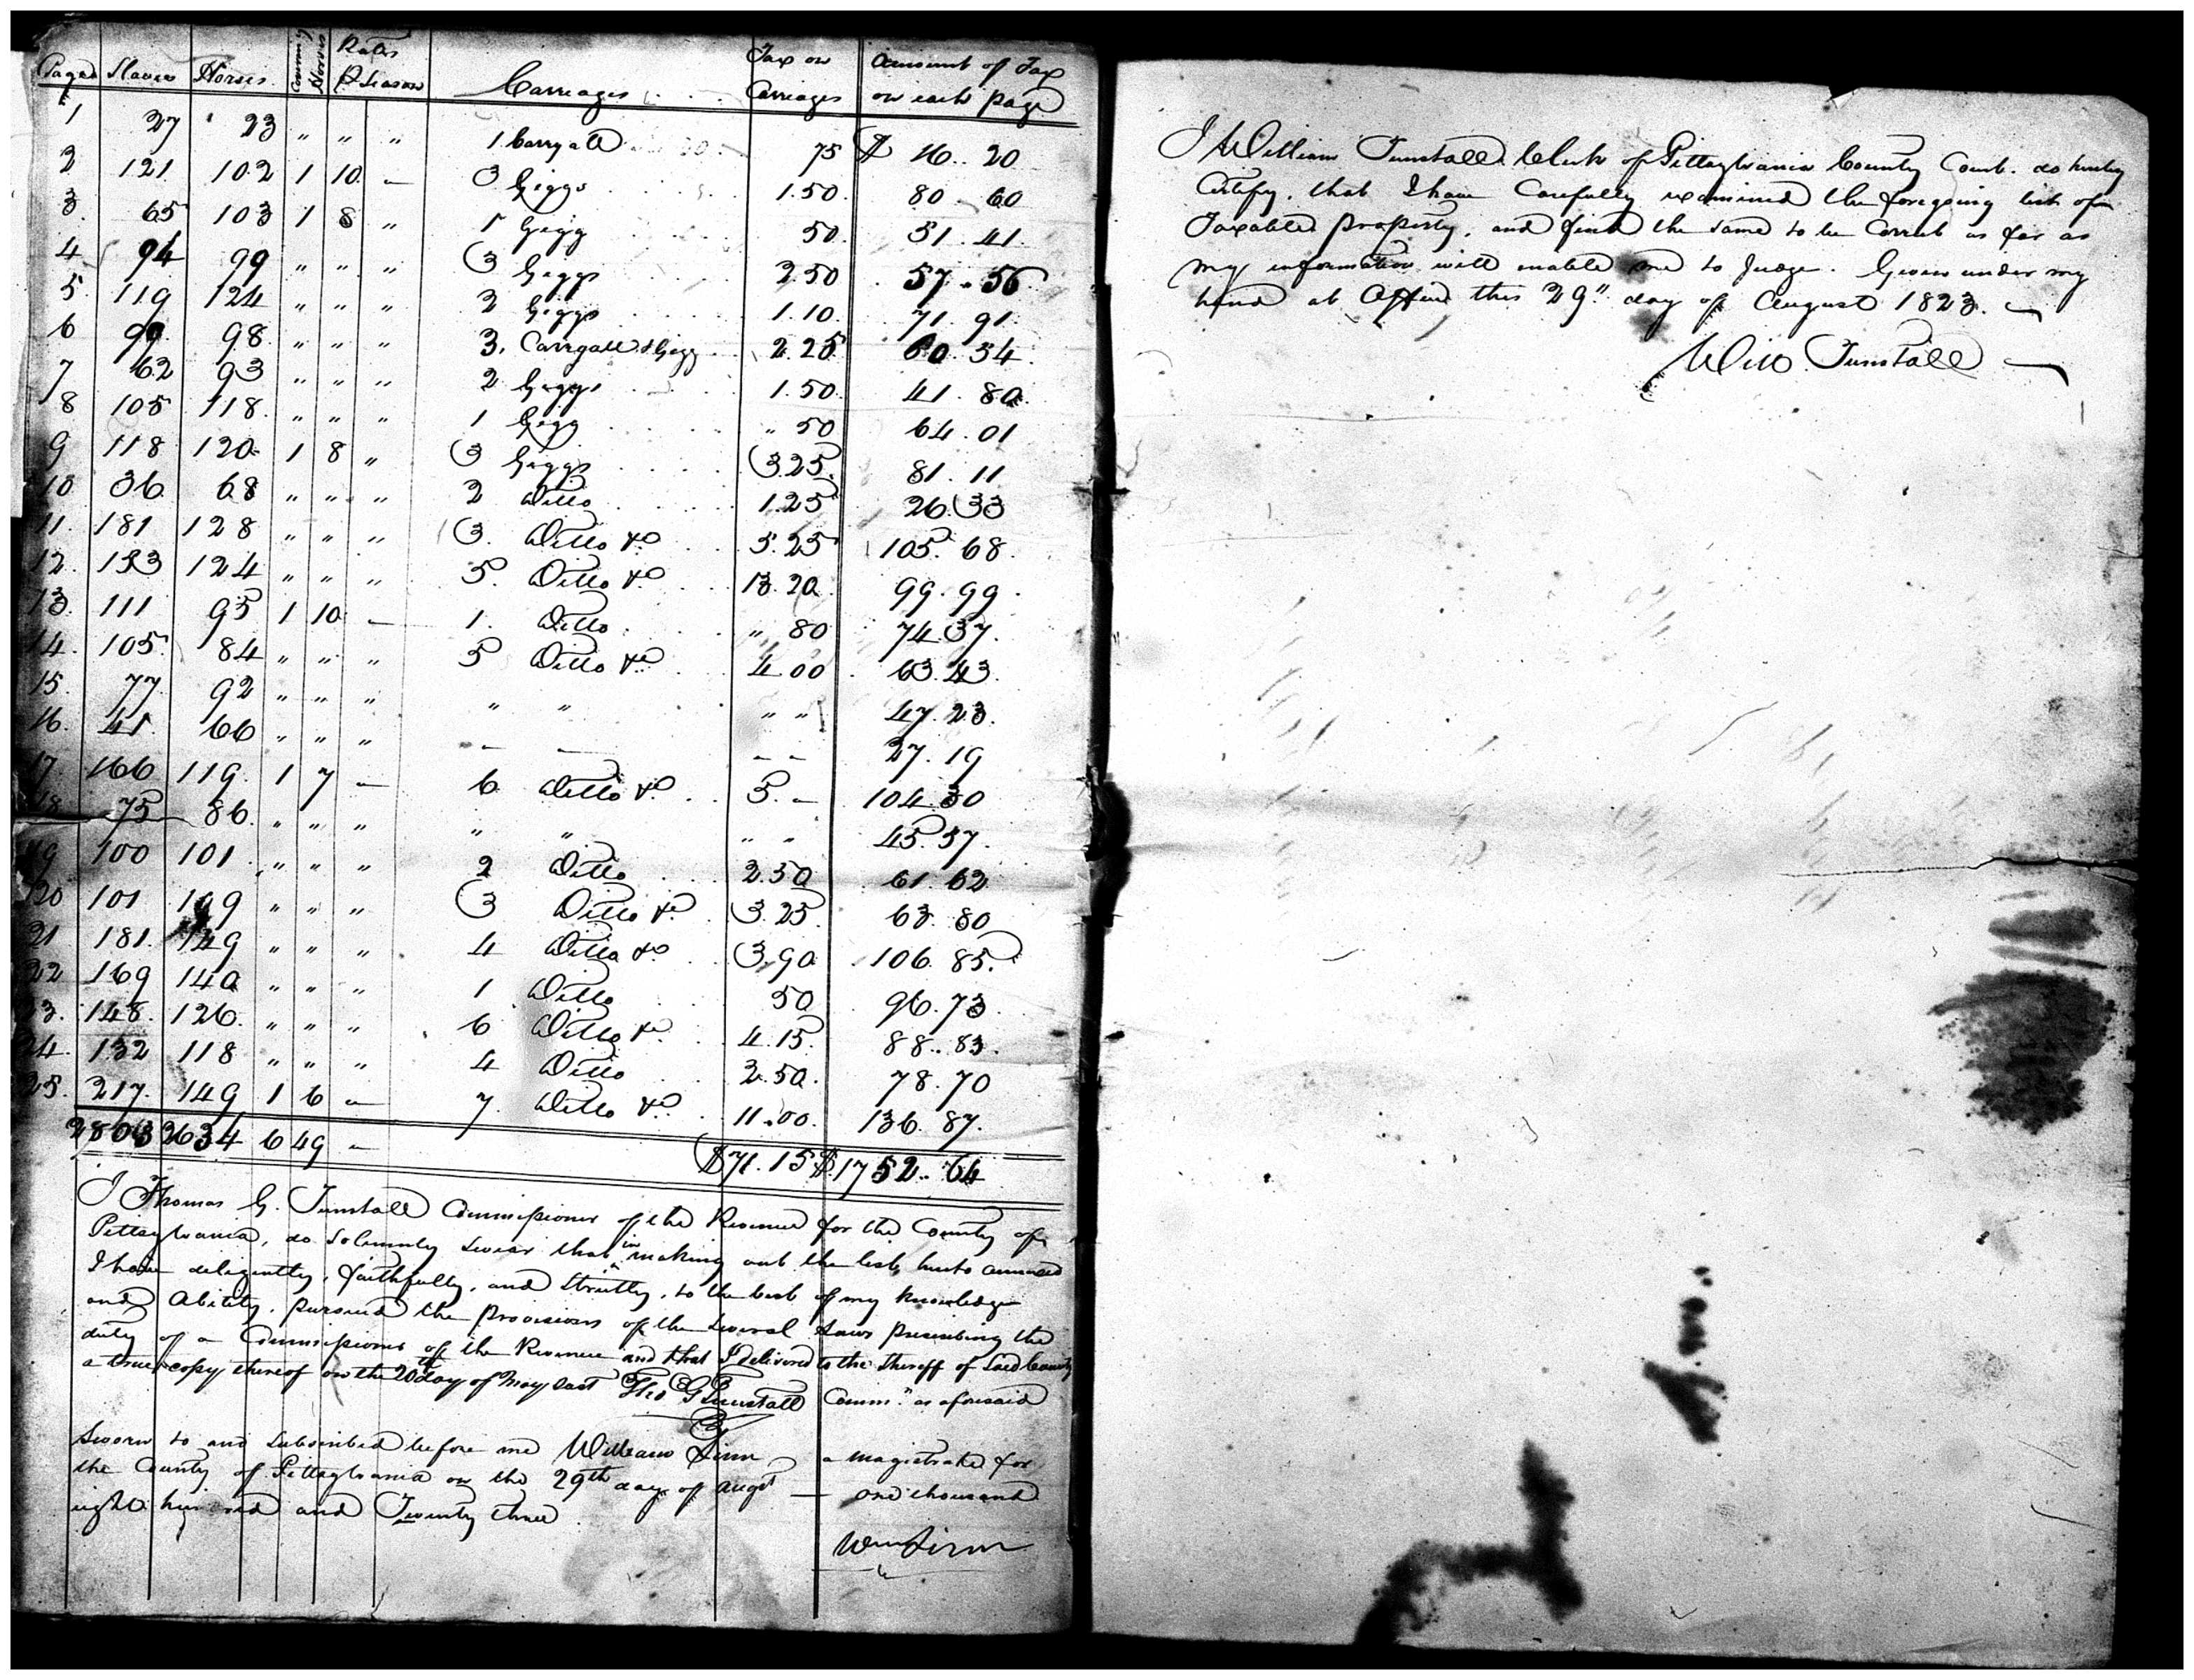 Pages Slaves Horses Covering Horses Rates P Season Carriages Tax on Carriages Amount of Tax on each page
1 27 23 " " " 1 Carryall 75 $ 16.. 20
2 121 102 1 10 — 3 Giggs 1.50 80.. 60
3. 65 103 1 8 " 1 Gigg 50. 51.. 41
4 94 99 " " " 3 Giggs 2.50 57.. 56
5. 119 124 " " " 2 Giggs 1.10. 71. 91
6 99. 98. " " " 3. Carryall & Gigg 2.25 60. 54
7 62 93 " " " 2 Giggs 1.50. 41. 80
8 105 118. " " " 1 Gigg " 50 64. 01
9 118 120. 1 8 " 3 Giggs 3.25. 81. 11
10 36 68 " " " 2 Ditto 1.25 26. 33
11. 181 128 " " " 3. Ditto &c 5.25 105. 68.
12. 153 124 " " " 5. Ditto &c 13.20 99. 99.
13. 111 95 1 10 — 1. Ditto " 80 74. 37.
14. 105 84 " " " 5 Ditto &c 4.00 63. 43.
15. 77. 92 " " " " " " " 47. 23.
16. 41. 66 " " " — — — — 27. 19
17. 166 119. 1 7 — 6 Ditto &c 5. — 104. 30
18 75 86. " " " " " " " 45. 57.
19 100 101 " " " 2 Ditto 2.50 61. 62
20 101 109 " " " 3 Ditto &c 3.25. 63. 80
21 181. 149 " " " 4 Ditto &c 3.90 106. 85.
22 169 140 " " " 1 Ditto 50 96. 73
23. 148. 126. " " " 6 Ditto &c 4.15. 88.. 83.
24. 132 118 " " " 4 Ditto 2.50. 78. 70
25. 217. 149 1 6 — 7. Ditto &c 11.00. 136. 87.
2803 2634 6 49 — $71. 15 $1752.. 64
I Thomas G. Tunstall Commissioner of the Revenue for the County of
Pittsylvania, do Solemnly Swear that in making out the list, hereto annexed
I have deligently, faithfully, and Strictly, to the best of my knowledge
and Ability, pursued the provisions of the several Laws prescribing the
duty of a Commissioner of the Revenue and that I delivered to the Sheriff of Said County
a true copy thereof on the 20th day of May last Tho G Tunstall Comm.r as aforesaid
Sworn to and Subscribed before me William Linn a magistrate for
the County of Pittsylvania on the 29th day of Augst — one thousand
eight hundred and Twenty three.
Wm Linn
I William Tunstall Clerk of Pittsylvania County Court. do hereby
Certify, that I have Carefully examined the foregoing list of
Taxable property, and find the Same to be Correct as far as
my information will enable me to Judge. Given under my
hand at Office this 29" day of August 1823. —
Will Tunstall —